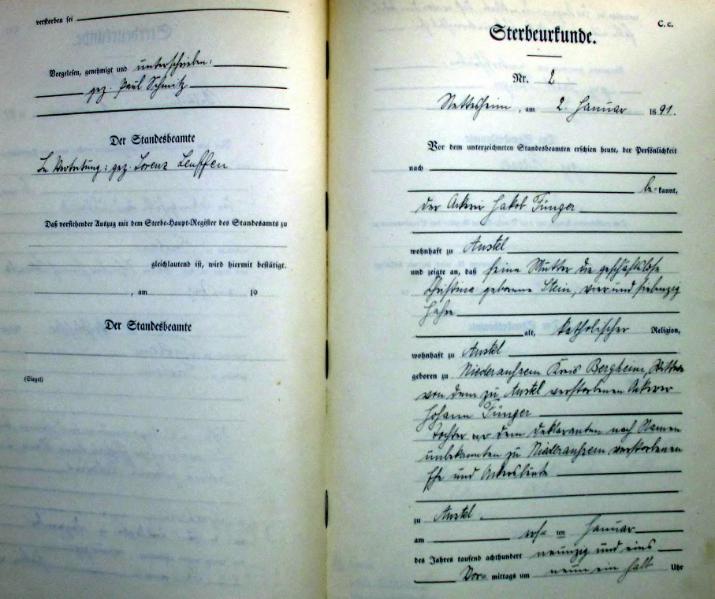 verstorben sei
Vorgelesen, genehmigt und unterschrieben.
gez. Paul Schmitz
Der Standesbeamte
In Vertretung: gez. Lorenz Leuffen
Daß vorstehender Auszug mit dem Sterbe-Haupt-Register des Standesamts zu
gleichlautend ist, wird hiermit bestätigt.
, am 19
Der Standesbeamte
(Siegel)
C. c.
Sterbeurkunde.
Nr. 2
Nettesheim, am 2. Januar 1891.
Vor dem unterzeichneten Standesbeamten erschien heute, der Persönlichkeit
nach
be-kannt,
der Ackerer JakobÜnger
wohnhaft zu Anstel
und zeigte an, daß seine Mutter die geschäftslose
Christina geborene Stein, vier und siebenzig
Jahre
alt, katholischer Religion,
wohnhaft zu Anstel
geboren zu Niederaußem Kreis Bergheim, Wittwe
von dem zu Anstel verstorbenen Ackerer
JohannÜnger
Tochter der dem Deklaranten nach Namen
unbekannten zu Niederaußem verstorbenen
Ehe und Ackersleute
zu Anstel
am ersten Januar
des Jahres tausend achthundert neunzig und eins
Vor- mittags um neun ein halb Uhr